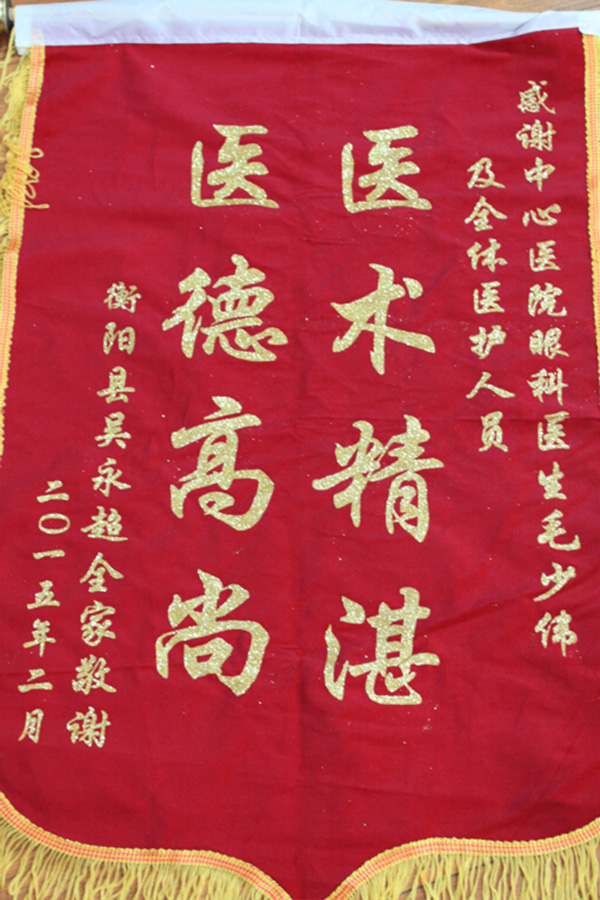 感谢中心医院眼科医生毛少伟
及全体医护人员
医术精湛
医德高尚
衡阳县吴永超全家敬谢
二〇一五年二月